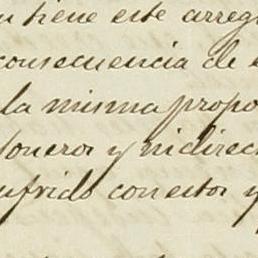 tiene este arreg
consecuencia de
la misma propo
y indirec
ufrido con estos y